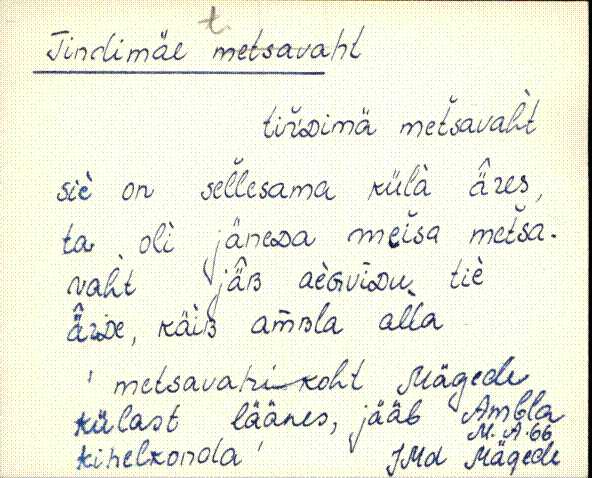 t
Tindimäe metsavaht
tiňᴅimä metšavaht̀
siè on sèllesama külà äres,
ta oli jäneᴅa mètsa metša-
vaht̀ jäʙ aèɢvīᴅu tiè
äřᴅe, käiʙ am̄ʙla alla
' metsavahi koht Mägede
külast läänes, jääb Ambla
kihelkonda '
M. A. 66
JMd Mägede